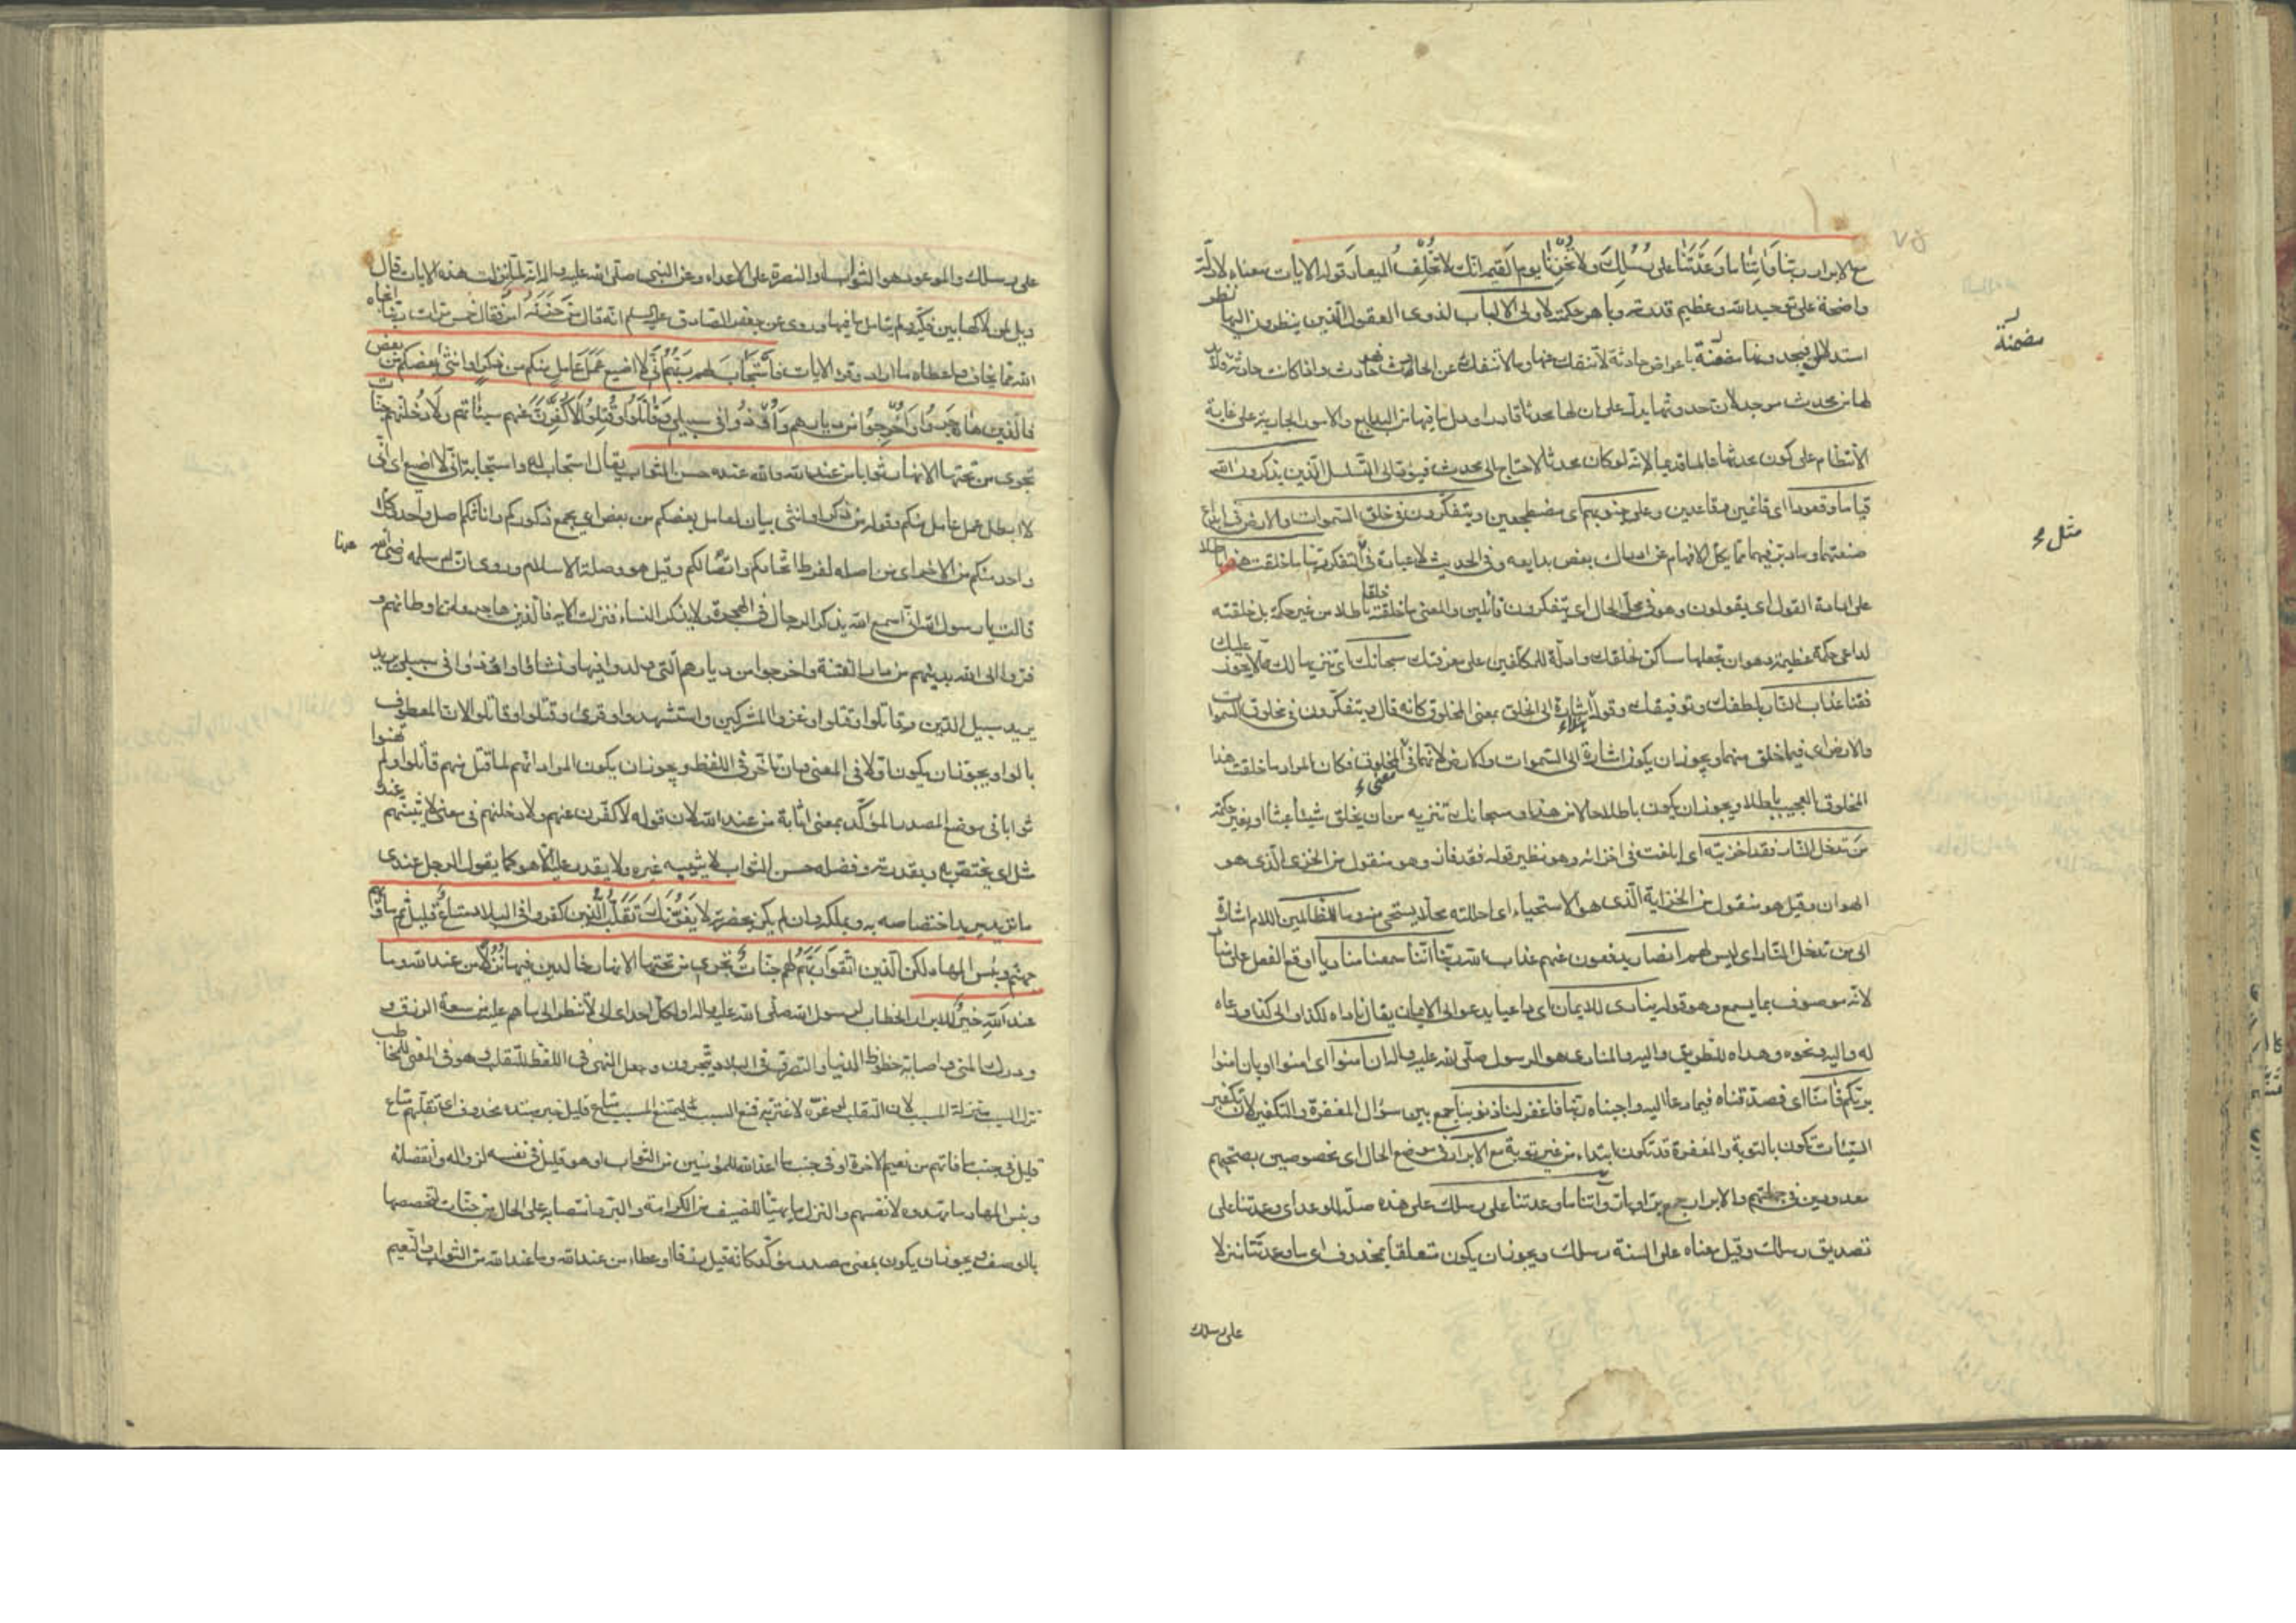 ٧٥
ع الابرار ربنا وآتنا ما وعدتنا على رسلك ولا تخزنا يوم القيمة انك لا تخلف الميعاد قوله الايات معناه لادلة
واضحة على توحيد الله وعظيم قدرته وباهر حكمته لاولى الالباب لذوى العقول الذين ينظرون اليها نظر
استدلال فيجدونها مضمنة باعراض حادثة لا تنفك عنها وما لا تنفك عن الحادث حادث واذا كانت حادثة فلابد
لها من محدث موجد لان حدوثها يدل على ان لها محدثا قادرا ودل ما فيها من البدايع والامور الجارية على غاية
الانتظام على كون محدثها عالما قديما لانه لو كان محدثا لاحتاج الى محدث فيؤدى الى التسلسل الذين يذكرون الله
قياما وقعودا اى قائمين وقاعدين وعلى جنوبهم اى مضطجعين ويتفكرون فى خلق السموات والارض فى ابداع
صنعتهما وما دبر فيهما مما يكل الافهام عن ادراك بعض بدايعه وفى الحديث لا عبادة كالتفكر ربنا ما خلقت هذا باطلا
على ارادة القول اى يقولون وهو فى محل الحال اى يتفكرون قائلين والمعنى ما خلقته خلقا باطلا من غير حكمة بل خلقته
لداعى حكمة عظيمة وهو ان تجعلها مساكن لخلقك وادلة للمكلفين على معرفتك سبحانك اى تنزيها لك عما لا يجوز عليك
فقنا عذاب النار بلطفك وتوفيقك وقوله هذا اشارة الى الخلق بمعنى المخلوق كانه قال ويتفكرون فى مخلوق السموات
والارض اى فيما خلق منهما ويجوز ان يكون اشارة الى السموات والارض لانهما فى معنى المخلوق فكان المراد ما خلقت هذا
المخلوق العجيب باطلا ويجوز ان يكون باطلا حالا من هذا وسبحانك تنزيه من ان يخلق شيئا عبثا او بغير حكمة
من تدخل النار فقد اخزيته اى ابلغت فى اخزائه وهو نظير قوله فقد فاز وهو منقول من الخزى الذى هو
الهوان وقيل هو منقول من الخزاية الذى هو الاستحياء اى احللته محلا يستحى منه وما للظالمين اللام اشارة
الى من تدخل النار اى ليس لهم انصار يدفعون عنهم عذاب الله ربنا اننا سمعنا مناديا اوقع الفعل على مناديا
لانه موصوف بما يسمع وهو قوله ينادى للايمان اى داعيا يدعو الى الايمان يقال ناداه لكذا والى كذا ودعاه
له واليه ونحوه وهداه للطريق واليه والمنادى هو الرسول صلى الله عليه واله ان آمنوا اى امنوا او بان امنوا
بربكم فامنا اى فصدقناه فيما دعا اليه واجبناه ربنا فاغفر لنا ذنوبنا جمع بين سؤال المغفرة والتكفير لان تكفير
السيئات تكون بالتوبة والمغفرة قد تكون ابتداء من غير توبة مع الابرار فى موضع الحال اى مخصوصين بصحبتهم
معدودين فى جملتهم والابرار جمع بر او بار وآتنا ما وعدتنا على رسلك على هذه صلة للوعد اى وعدتنا على
تصديق رسلك وقيل معناه على السنة رسلك ويجوز ان يكون متعلقا بمحذوف اى ما وعدتنا منزلا
على رسلك
مضمنة
مثل
على رسلك والموعود هو الثواب والنصرة على الاعداء وعن النبى صلى الله عليه واله انه لما نزلت هذه الايات قال
ويل لمن لاكها بين فكيه ولم يتامل ما فيها وروى عن جعفر الصادق عليه السلم انه قال من حزنه امر فقال خمس مرات ربنا انجاه
الله مما يخاف واعطاه ما اراد وقرء الايات فاستجاب لهم ربهم انى لا اضيع عمل عامل منكم من ذكر او انثى بعضكم من بعض
فالذين هاجروا واخرجوا من ديارهم واوذوا فى سبيلى وقاتلوا وقتلوا لاكفرن عنهم سيئاتهم ولادخلنهم جنات
تجرى من تحتها الانهار ثوابا من عند الله والله عنده حسن الثواب يقال استجاب له واستجابه انى لا اضيع اى انى
لا ابطل عمل عامل منكم وقوله من ذكر او انثى بيان لعامل بعضكم من بعض اى يجمع ذكوركم واناثكم اصل واحد فكل
واحد منكم من الاخر اى من اصله لفرط اتحادكم واتصالكم وقيل هو وصلة الاسلام وروى ان ام سلمه رضى الله عنها
قالت يا رسول الله انى اسمع الله يذكر الرجال فى الهجرة ولا يذكر النساء فنزلت الايه فالذين هاجروا من اوطانهم و
فروا الى الله بدينهم من دار الفتنة واخرجوا من ديارهم التى ولدوا فيها ونشاؤا واوذوا فى سبيلى يريد
يريد سبيل الدين وقاتلوا وقتلوا وغزوا المشركين واستشهدوا وقرئ وقتلوا وقاتلوا لان المعطوف
بالواو يجوز ان يكون اولا فى المعنى وان تاخر فى اللفظ ويجوز ان يكون المراد انهم لما قتل منهم قاتلوا ولم تهنوا
ثوابا فى موضع المصدر المؤكد بمعنى اثابة من عند الله لان قوله لاكفرن عنهم ولادخلنهم فى معنى لاثيبنهم عنده
مثل اى يختص به وبقدرته وفضله حسن الثواب لا يثيبه غيره ولا يقدر عليه الا هو كما يقول الرجل عندى
ما تريد يريد اختصاصه به وبملكه وان لم يكن بحضرته لا يغرنك تقلب الذين كفروا فى البلاد متاع قليل ثم ماواهم
جهنم وبئس المهاد لكن الذين اتقوا ربهم لهم جنات تجرى من تحتها الانهار خالدين فيها نزلا من عند الله وما
عند الله خير للابرار الخطاب لرسول الله صلى الله عليه واله او لكل احد اى لا تنظر الى ما هم عليه من سعة الرزق و
ودرك المنى واصابة حظوظ الدنيا والتصرف فى البلاد يتجرون وجعل النهى فى اللفظ للتقلب وهو فى المعنى للمخاطب
نزل السبب منزلة المسبب لان التقلب لو غره لاغتر به فمنع السبب ليمتنع المسبب متاع قليل خبر مبتدء محذوف اى تقلبهم متاع
قليل فى جنب ما فاتهم من نعيم الاخرة او فى جنب ما اعد الله للمؤمنين من الثواب او هو قليل فى نفسه لزواله وانقضائه
وبئس المهاد وما مهدوه لانفسهم والنزل ما يهيئا للضيف من الكرامة والبر وانتصابه على الحال من جنات لتخصصها
بالوصف ويجوز ان يكون بمعنى مصدر مؤكد كانه قيل رزقا او عطاء من عند الله وما عند الله من الثواب والنعيم